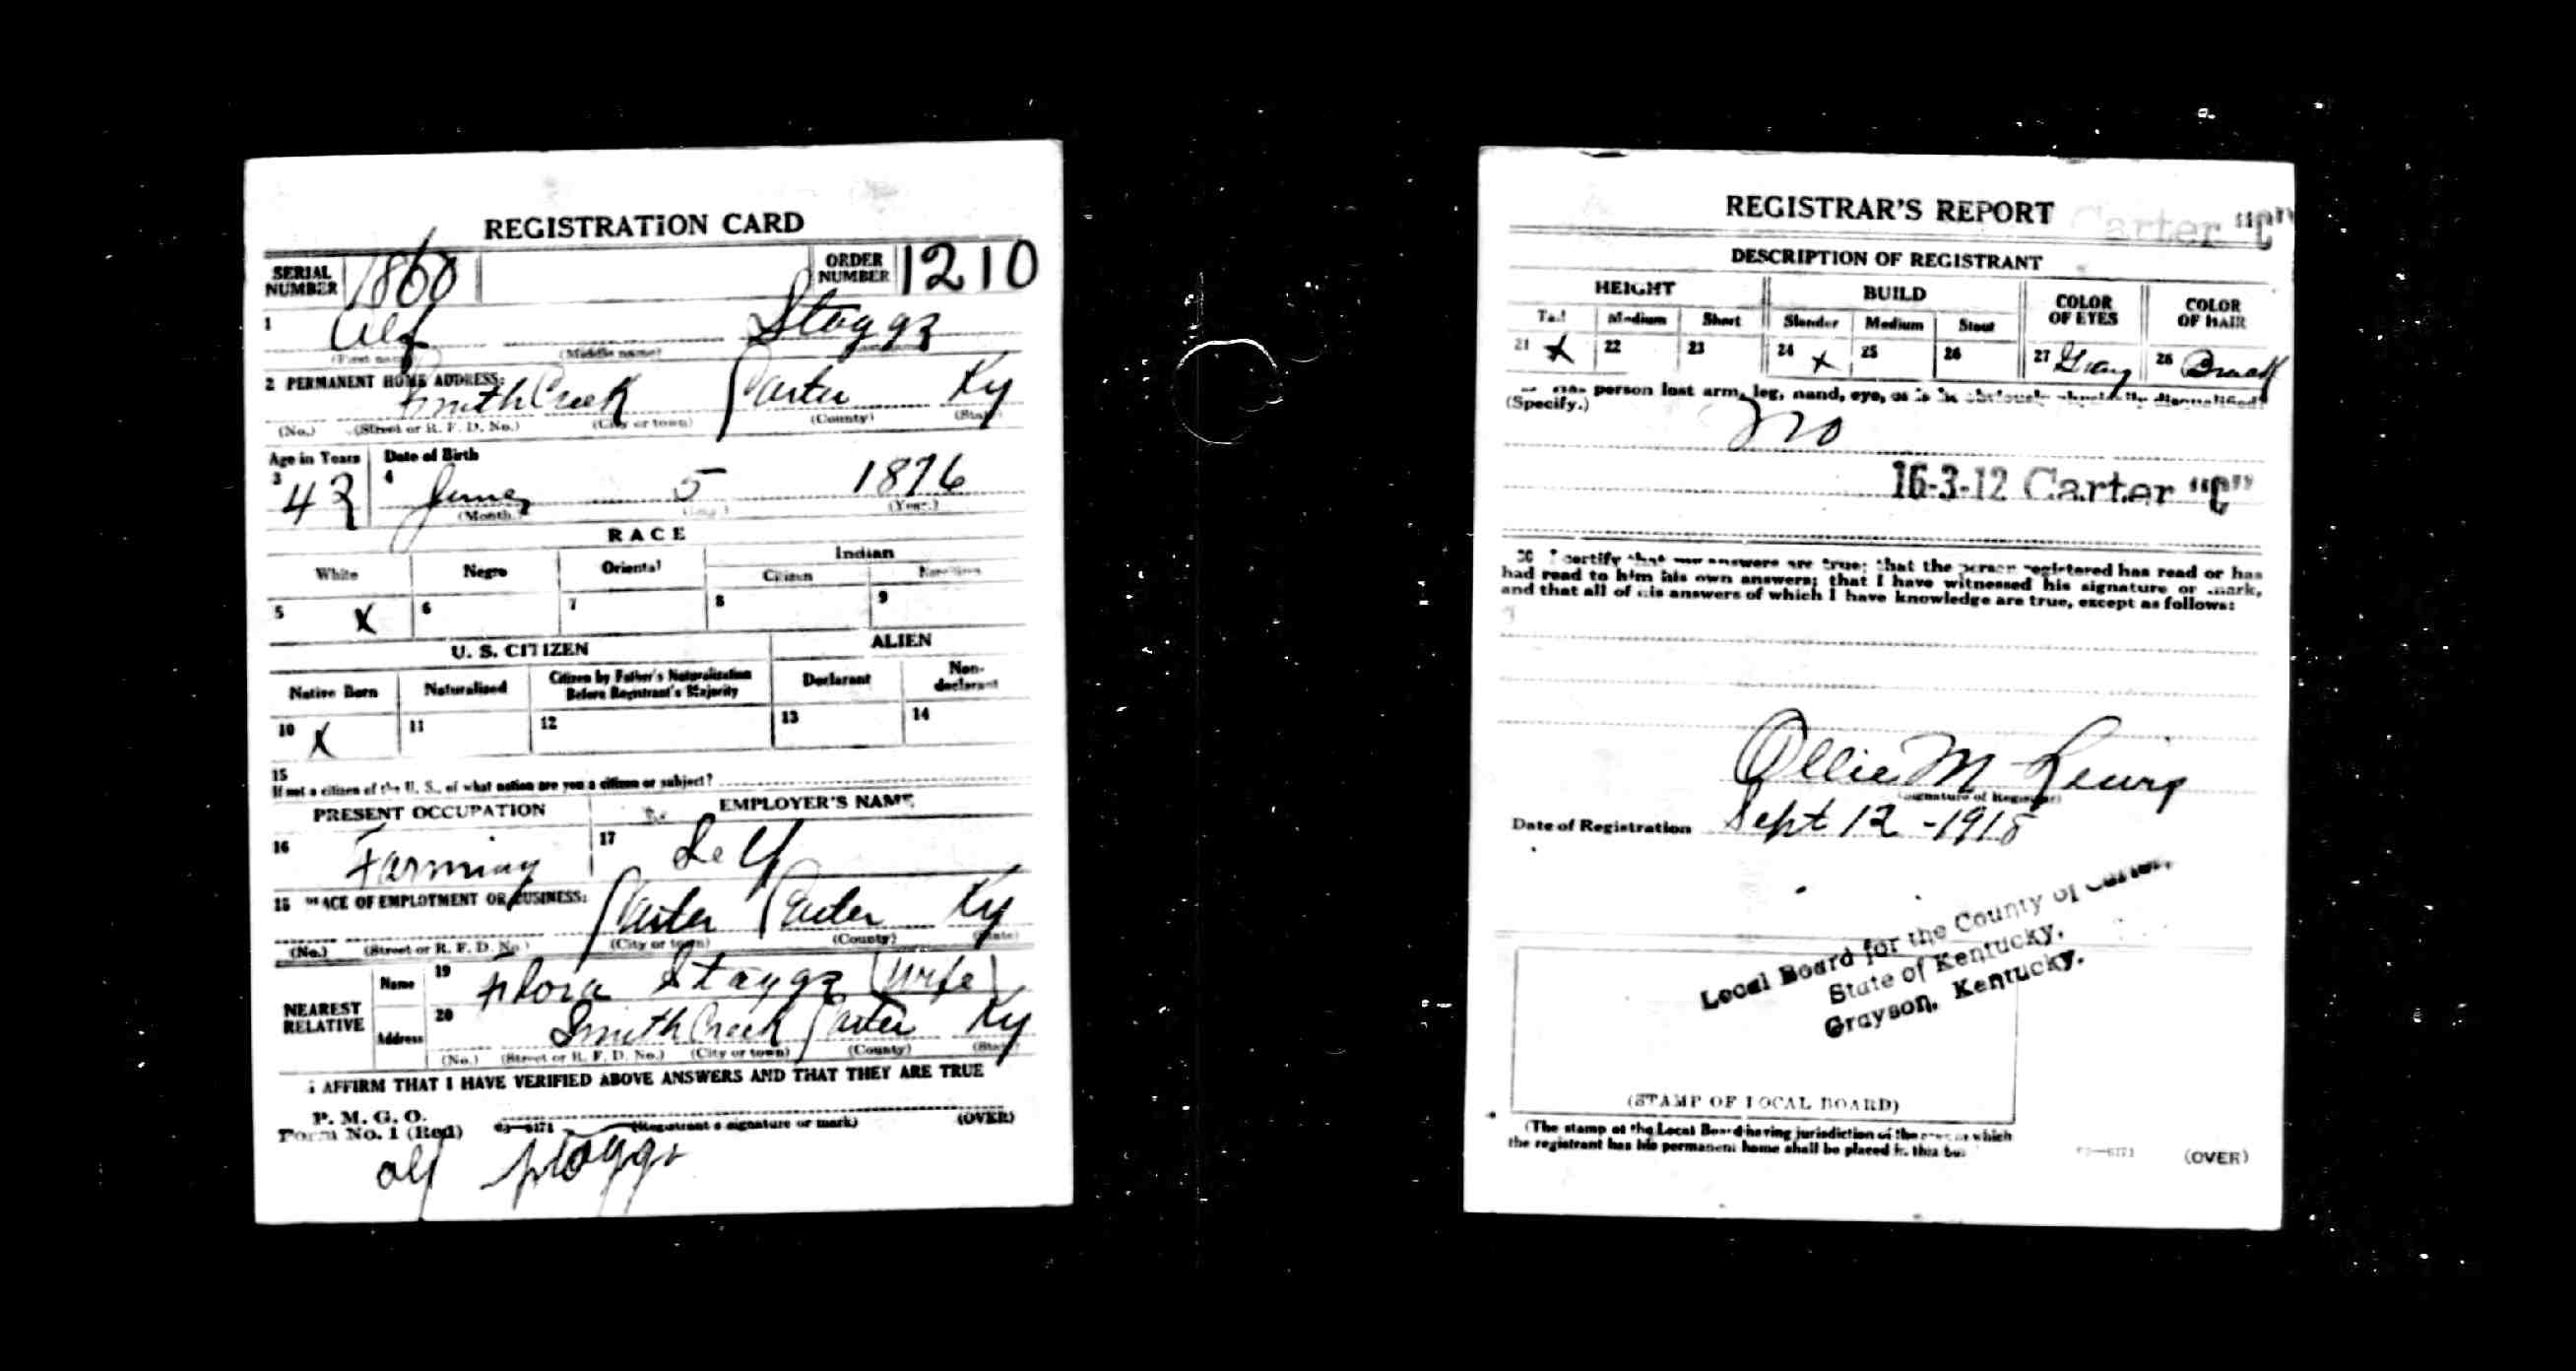 REGISTRATION CARD
SERIAL NUMBER 1860 ORDER NUMBER 1210
1 Alf Staggs
(First name) (Middle name)
2 PERMANENT HOME ADDRESS:
Smith Creek Carter Ky
(No.) (Street or R. F. D. No.) (City or town) (County) (State)
Age in Years Date of Birth
3 42 4 June 5 1876
(Month.) (Day.) (Year.)
RACE
White Negro Oriental Indian
Citizen
5 X 6 7 8 9
U. S. CITIZEN ALIEN
Native Born Naturalized Citizen by Father's Naturalization Before Registrant's Majority Declarant Non-declarant
10 X 11 12 13 14
15
If not a citizen of the U. S., of what nation are you a citizen or subject?
PRESENT OCCUPATION EMPLOYER'S NAME
16 Farming 17 Self
18 PLACE OF EMPLOYMENT OR BUSINESS:
Carter Carter Ky
(No.) (Street or R. F. D. No.) (City or town) (County) (State)
NEAREST RELATIVE
Name 19 Flora Staggs (Wife)
Address 20 Smith Creek Carter Ky
(No.) (Street or R. F. D. No.) (City or town) (County) (State)
I AFFIRM THAT I HAVE VERIFIED ABOVE ANSWERS AND THAT THEY ARE TRUE
P. M. G. O.
Form No. 1 (Red) 03—6171 (Registrant's signature or mark) (OVER)
Alf Staggs
REGISTRAR'S REPORT Carter "C"
DESCRIPTION OF REGISTRANT
HEIGHT BUILD COLOR OF EYES COLOR OF HAIR
Tall Medium Short Slender Medium Stout
21 X 22 23 24 X 25 26 27 Gray 28
person lost arm, leg, hand, eye, or is he obviously physically disqualified?
(Specify.)
No
16-3-12 Carter "C"
30 I certify that my answers are true; that the person registered has read or has
had read to him his own answers; that I have witnessed his signature or mark,
and that all of his answers of which I have knowledge are true, except as follows:
Ollie M Lewis
(Signature of Registrar)
Date of Registration Sept 12 - 1918
Local Board for the County of Carter,
State of Kentucky,
Grayson, Kentucky.
(STAMP OF LOCAL BOARD)
(The stamp of the Local Board having jurisdiction of the area in which
the registrant has his permanent home shall be placed in this box.
03—6171 (OVER)